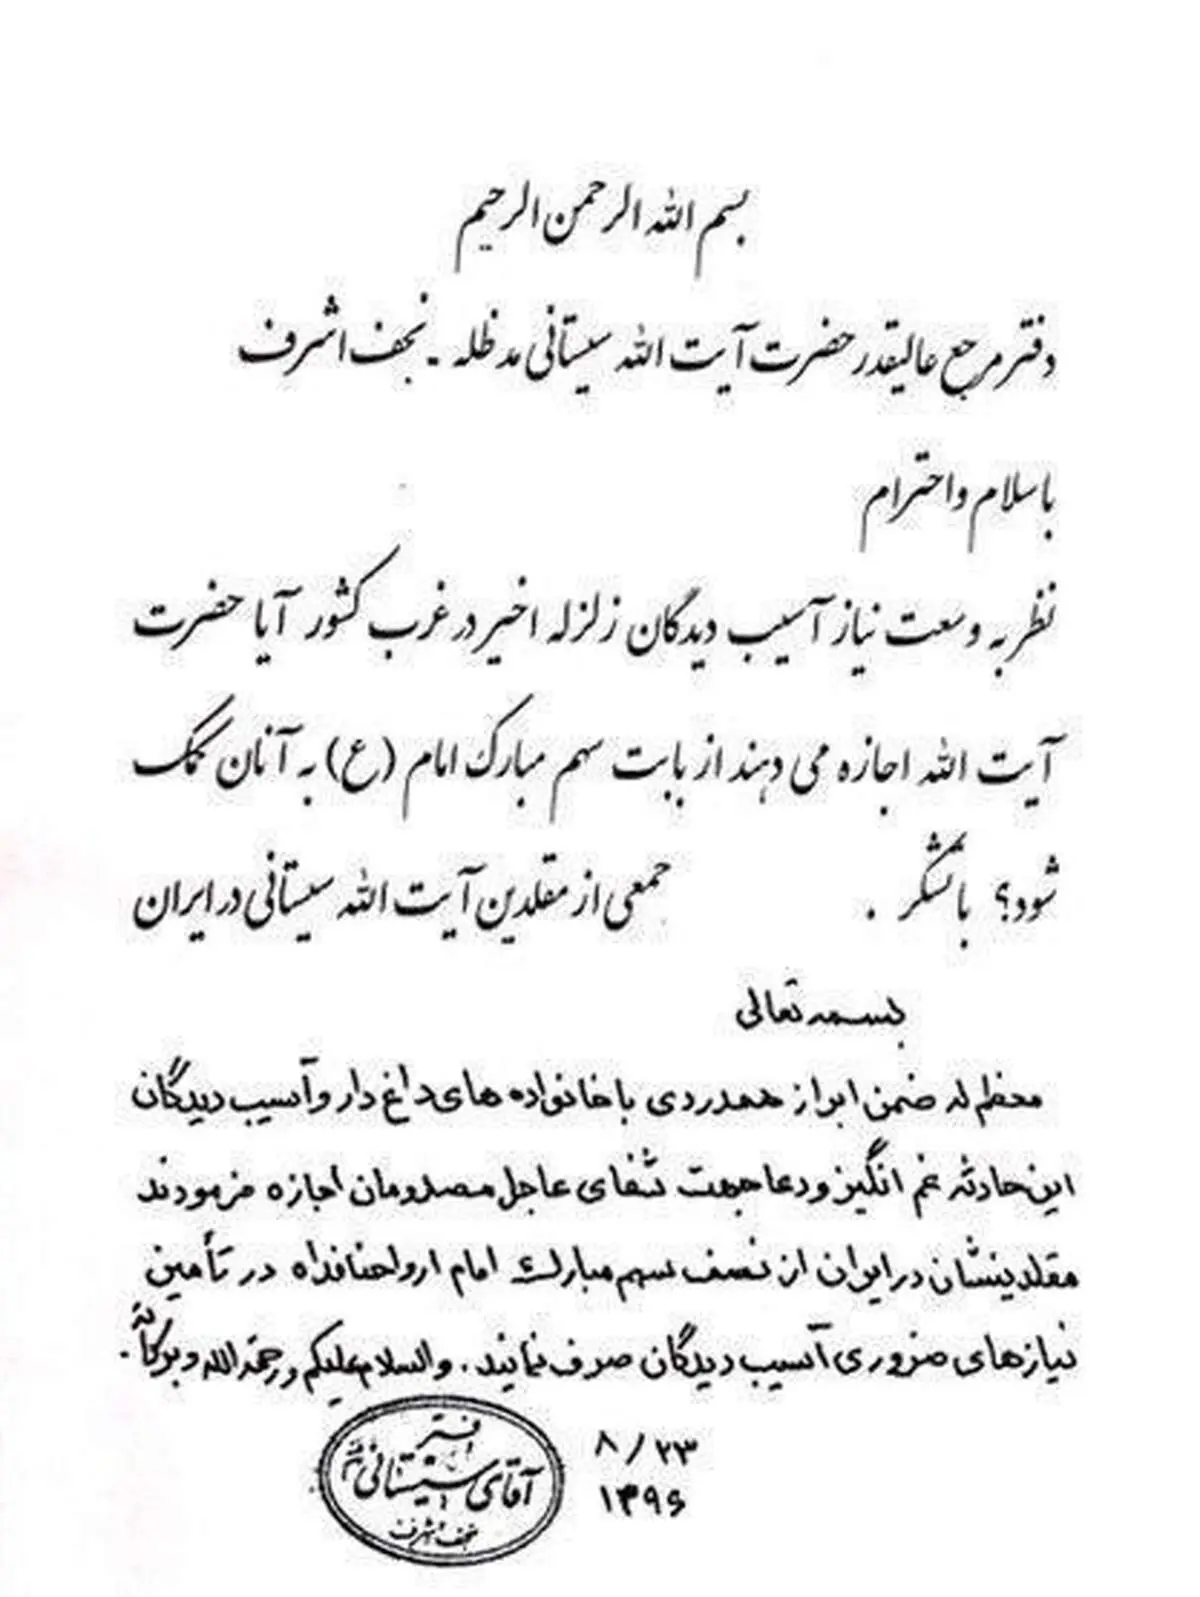 بسم الله الرحمن الرحیم
دفتر مرجع عالیقدر حضرت آیت الله سیستانی مد ظله - نجف اشرف
با سلام و احترام
نظر به وسعت نیاز آسیب دیدگان زلزله اخیر در غرب کشور آیا حضرت
آیت الله اجازه می دهند از بابت سهم مبارک امام (ع) به آنان کمک
شود؟ با تشکر .
جمعی از مقلدین آیت الله سیستانی در ایران
بسمه تعالی
معظم له ضمن ابراز همدردی با خانواده های داغ دار و آسیب دیدگان
این حادثه غم انگیز و دعا جهت شفای عاجل مصدومان اجازه فرمودند
مقلدینشان در ایران از نصف سهم مبارک امام ارواحنا فداه در تأمین
نیازهای ضروری آسیب دیدگان صرف نمایند. والسلام علیکم ورحمة الله وبرکاته.
۸/۲۳
۱۳۹۶
دفتر
آقای سیستانی
نجف اشرف